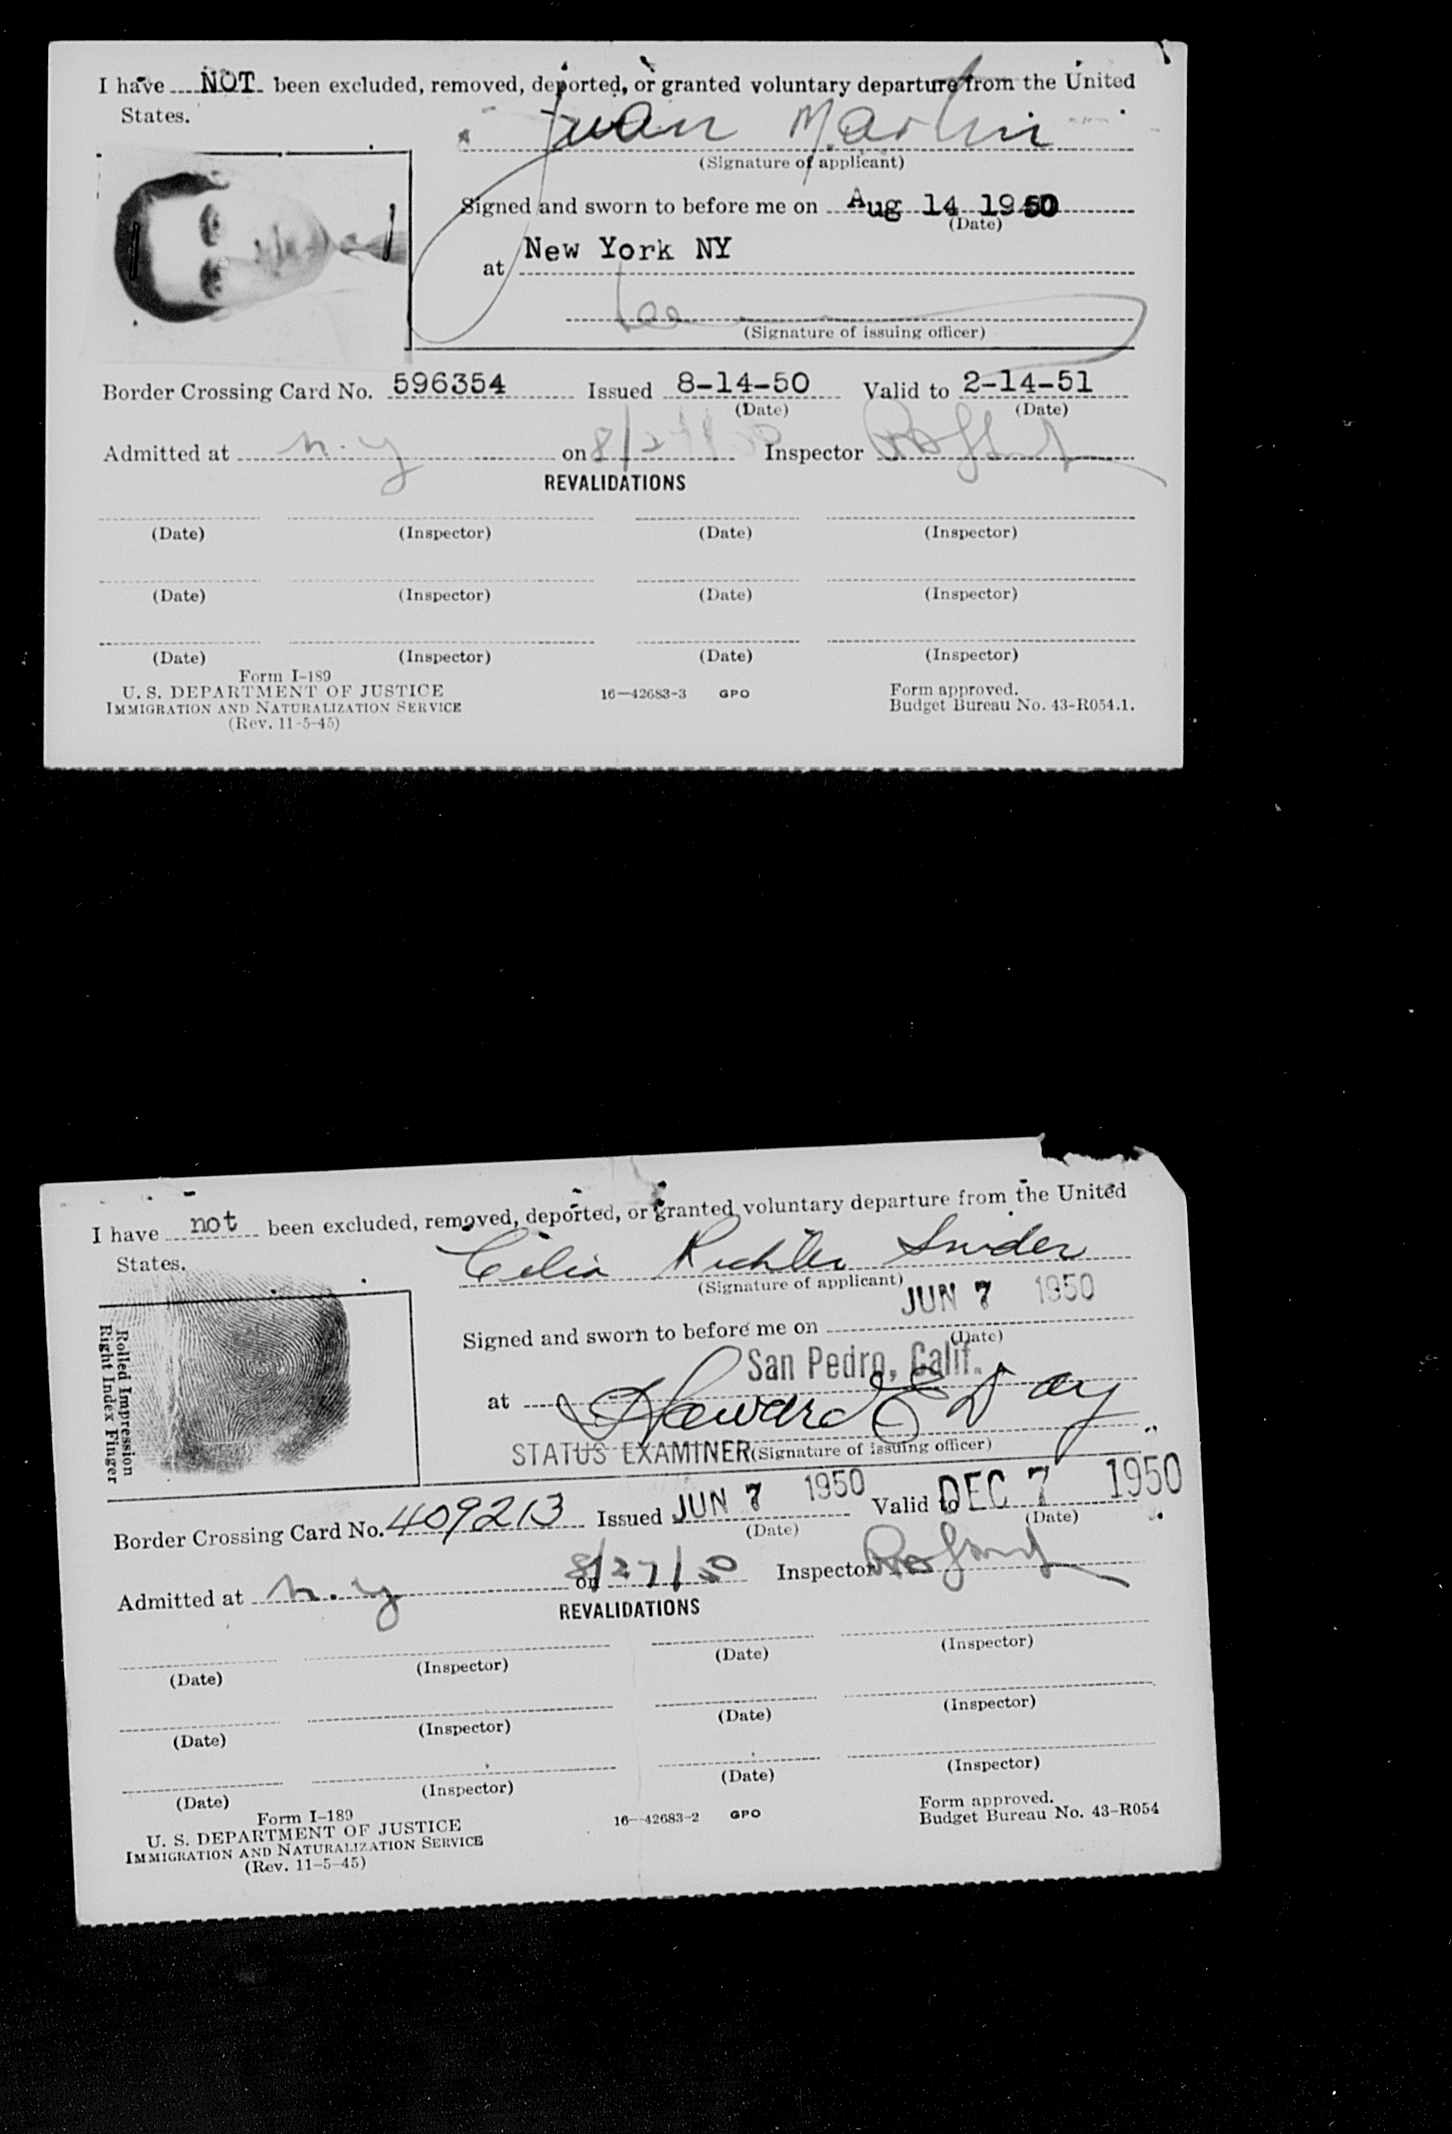 I have NOT been excluded, removed, deported, or granted voluntary departure from the United
States.
Juan Martin
(Signature of applicant)
Signed and sworn to before me on Aug 14 1950
(Date)
at New York NY
(Signature of issuing officer)
Border Crossing Card No. 596354 Issued 8-14-50 Valid to 2-14-51
(Date) (Date)
Admitted at n.y on 8/27/50 Inspector
REVALIDATIONS
(Date) (Inspector) (Date) (Inspector)
(Date) (Inspector) (Date) (Inspector)
(Date) (Inspector) (Date) (Inspector)
Form I-189
U. S. DEPARTMENT OF JUSTICE 16—42683-3 GPO Form approved.
IMMIGRATION AND NATURALIZATION SERVICE Budget Bureau No. 43-R054.1.
(Rev. 11-5-45)
I have not been excluded, removed, deported, or granted voluntary departure from the United
States.
Celia Richler Snider
(Signature of applicant)
JUN 7 1950
Signed and sworn to before me on
(Date)
San Pedro, Calif.
at Howard E Day
STATUS EXAMINER (Signature of issuing officer)
Rolled Impression
Right Index Finger
Border Crossing Card No. 409213 Issued JUN 7 1950 Valid to DEC 7 1950
(Date) (Date)
Admitted at n.y on 8/27/50 Inspector
REVALIDATIONS
(Date) (Inspector) (Date) (Inspector)
(Date) (Inspector) (Date) (Inspector)
(Date) (Inspector) (Date) (Inspector)
Form I-189
U. S. DEPARTMENT OF JUSTICE 16—42683-2 GPO Form approved.
IMMIGRATION AND NATURALIZATION SERVICE Budget Bureau No. 43-R054
(Rev. 11-5-45)